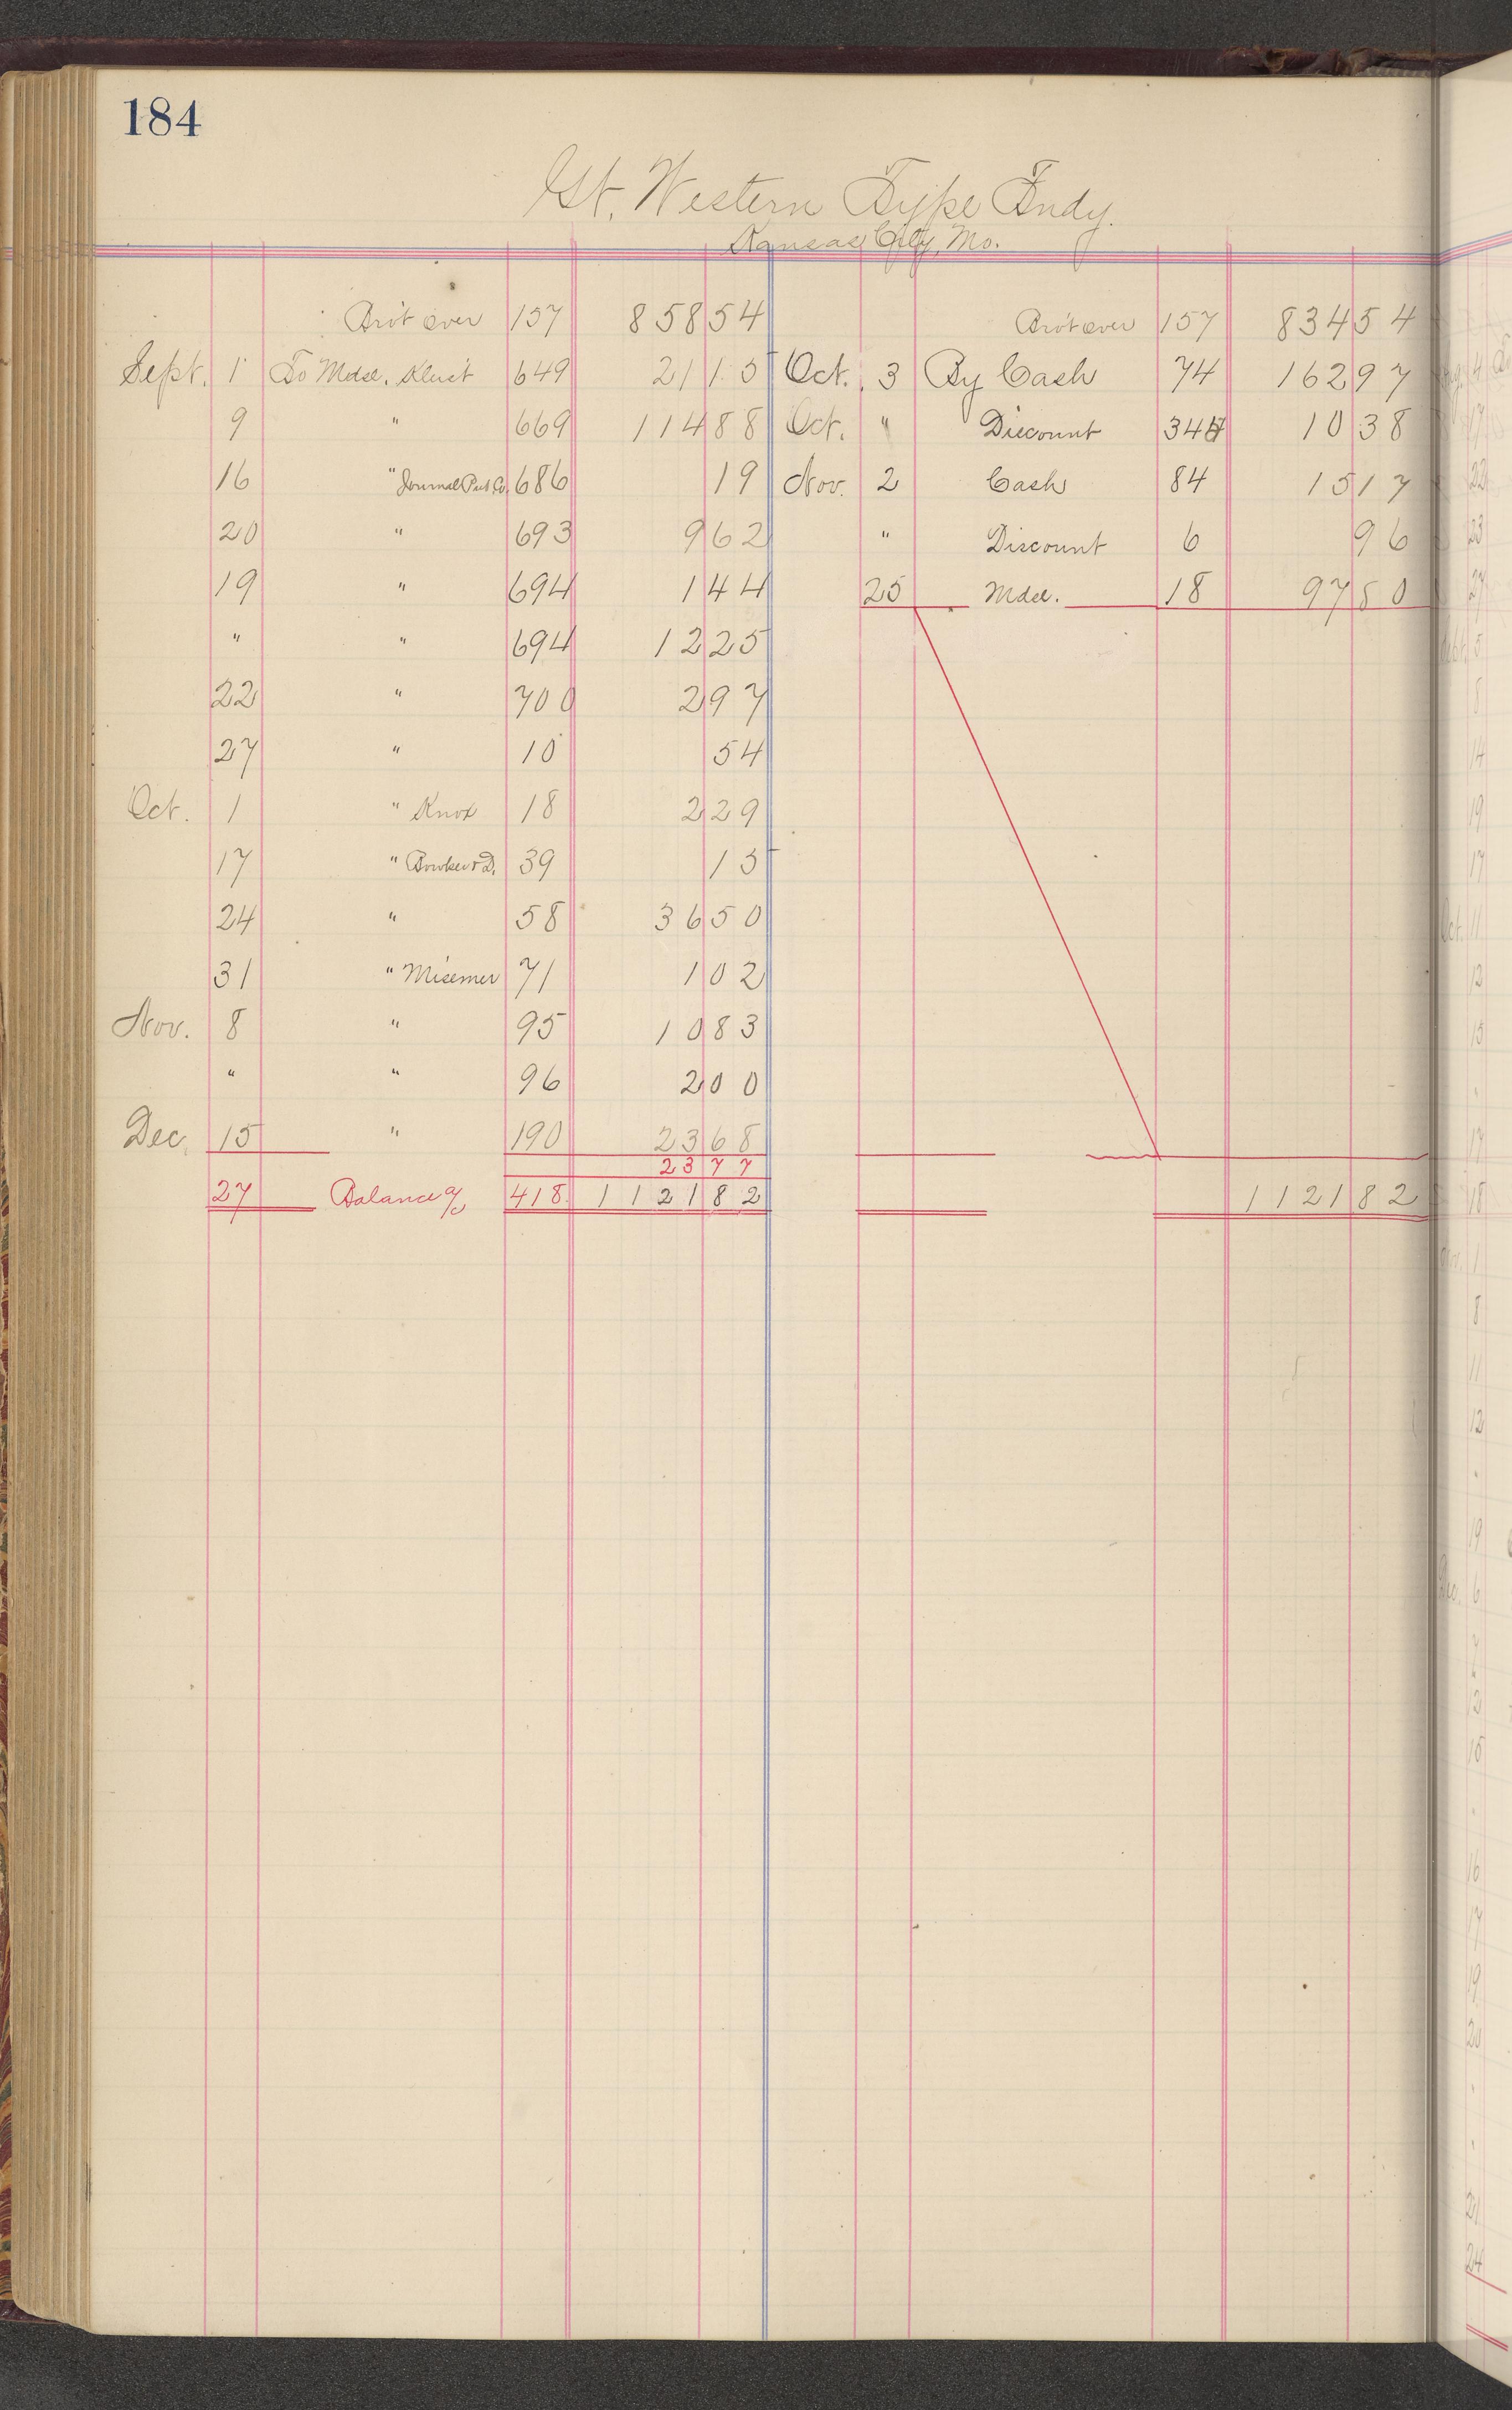 184
Gt. Western Type Fndy.
Kansas City, Mo.
Bro't over 157 858 54 Bro't over 157 834 54
Sept. 1 To Mdse. 649 21 15 Oct. 3 By Cash 74 162 97
9 " 669 114 88 Oct. " Discount 10 38
16 " Journal Pub. Co. 686 19 Nov. 2 Cash 84 15 17
20 " 693 9 62 " Discount 6 96
19 " 694 1 44 25 Mdse. 18 97 80
" " 694 12 25
22 " 700 2 97
27 " 10 54
Oct. 1 " Knox 18 2 29
17 " Bowker & D. 39 15
24 " 58 36 50
31 " Misemer 71 1 02
Nov. 8 " 95 10 83
" " 96 2 00
Dec. 15 " 190 23 68
23 77
27 Balance a/c 418 1121 82 1121 82